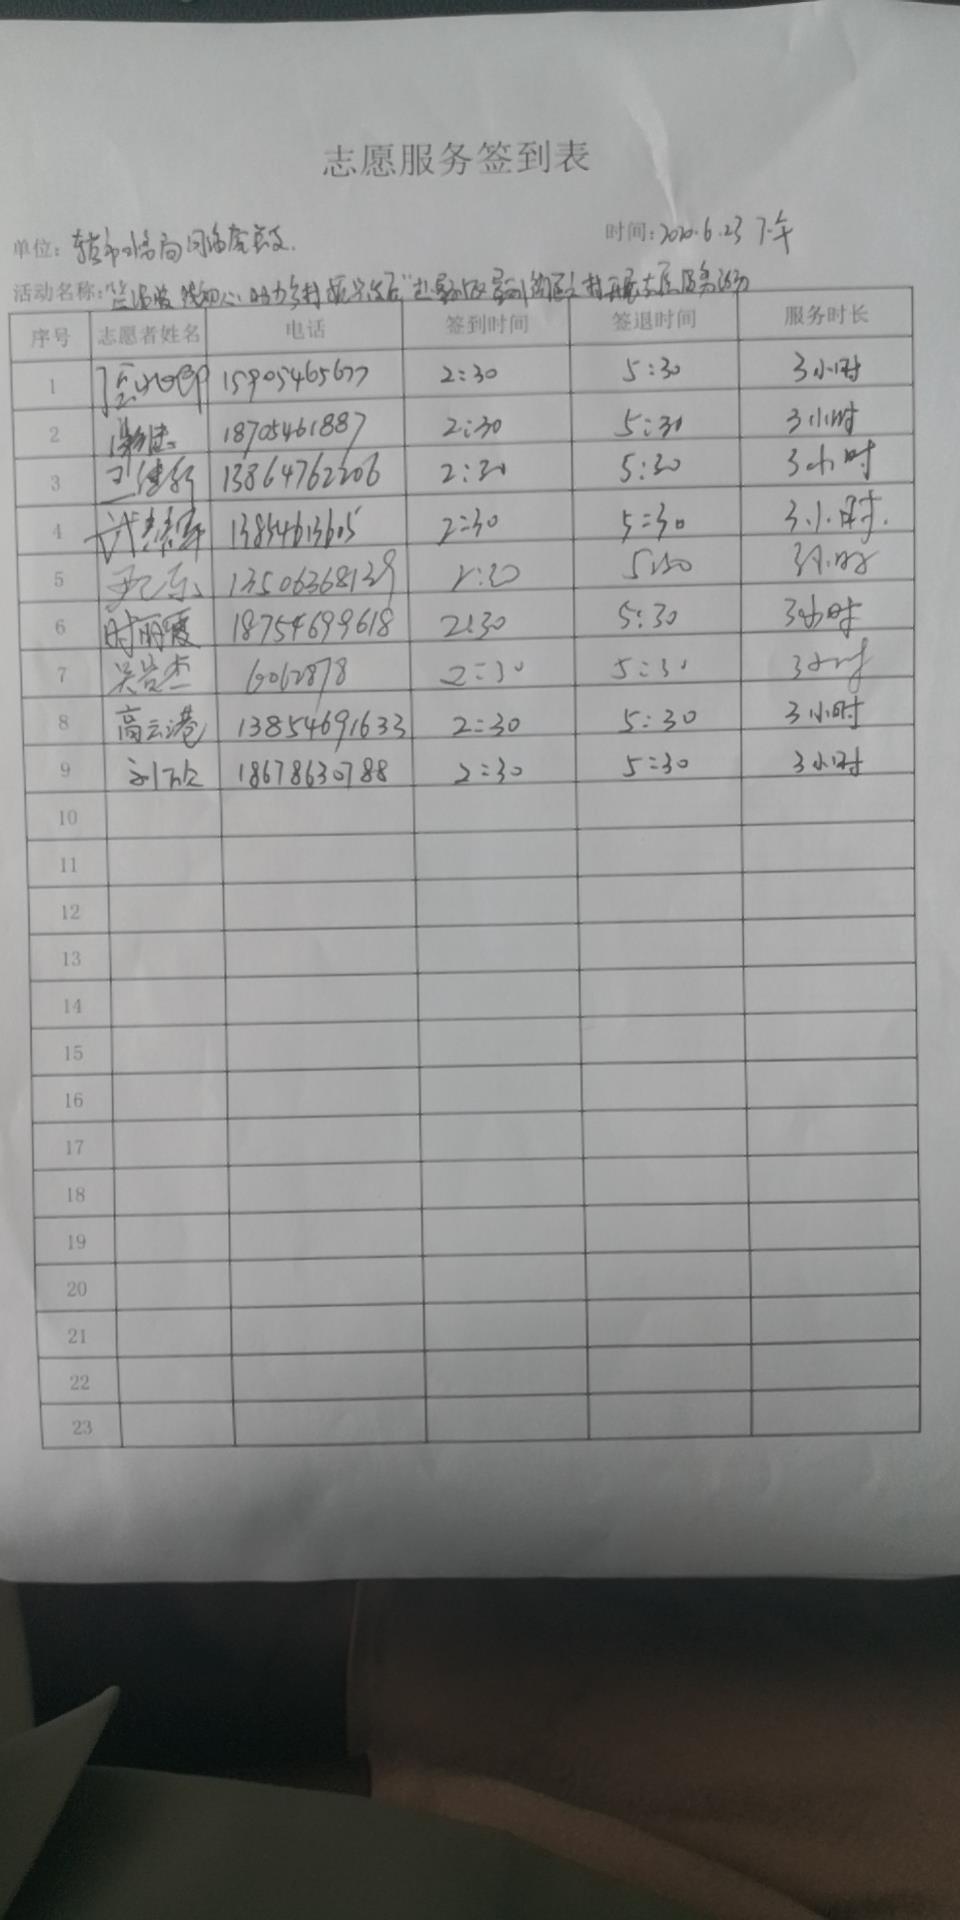 志愿服务签到表
单位: 时间:2020.6.23 下午
活动名称:
序号 志愿者姓名 电话 签到时间 签退时间 服务时长
1 15905465677 2:30 5:30 3小时
2 18705461887 2:30 5:30 3小时
3 13864762206 2:30 5:30 3小时
4 13854613605 2:30 5:30 3小时.
5 13506368139 2:30 5:30 3小时
6 时丽霞 18754699618 2:30 5:30 3小时
7 吴岩杰 6062878 2:30 5:30 3小时
8 高云港 13854691633 2:30 5:30 3小时
9 刘欣 18678630788 2:30 5:30 3小时
10
11
12
13
14
15
16
17
18
19
20
21
22
23